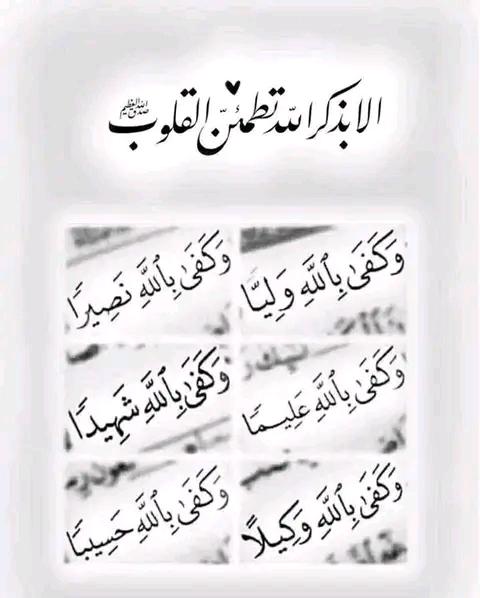 الا بذكر الله تطمئن القلوب
صدق الله العظيم
وَكَفَىٰ بِٱللَّهِ وَلِيًّا
وَكَفَىٰ بِٱللَّهِ نَصِيرًا
وَكَفَىٰ بِٱللَّهِ عَلِيمًا
وَكَفَىٰ بِٱللَّهِ شَهِيدًا
وَكَفَىٰ بِٱللَّهِ وَكِيلًا
وَكَفَىٰ بِٱللَّهِ حَسِيبًا